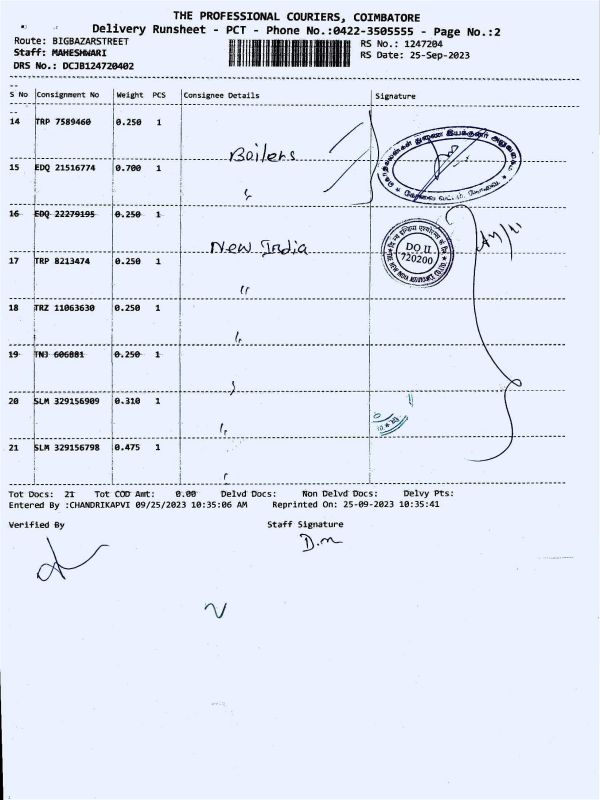 THE PROFESSIONAL COURIERS, COIMBATORE
Delivery Runsheet - PCT - Phone No.:0422-3505555 - Page No.:2
Route: BIGBAZARSTREET
RS No.: 1247204
Staff: MAHESHWARI
RS Date: 25-Sep-2023
DRS No.: DCJB124720402
S No Consignment No Weight PCS Consignee Details Signature
14 TRP 7589460 0.250 1
Boilers
15 EDQ 21516774 0.700 1
16 EDQ 22279195 0.250 1
New India
DO II
720200
17 TRP 8213474 0.250 1
"
18 TRZ 11063630 0.250 1
19 TNJ 606881 0.250 1
20 SLM 329156909 0.310 1
21 SLM 329156798 0.475 1
Tot Docs: 21 Tot COD Amt: 0.00 Delvd Docs: Non Delvd Docs: Delvy Pts:
Entered By :CHANDRIKAPVI 09/25/2023 10:35:06 AM Reprinted On: 25-09-2023 10:35:41
Verified By Staff Signature
D.m